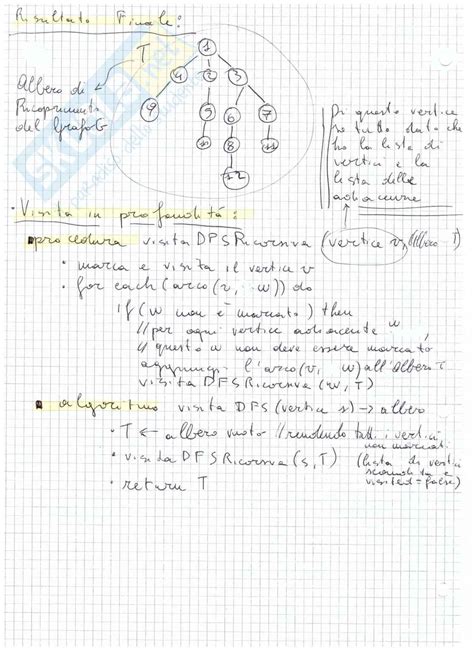 Risultato Finale:
T
1
4 2 3
9 5 6 7
10 8 11
12
Albero di
Ricoprimento
del Grafo G
Di questo vertice
ho tutto dato che
ho la lista di
vertici e la
lista delle
adiacenze
· Visita in profondità:
procedura visita DFSRicorsiva (vertice v, Albero T)
· marca e visita il vertice v
· for each (arco (v, w)) do
if (w non è marcato) then
// per ogni vertice adiacente w,
// questo w non deve essere marcato
aggiungi l'arco (v, w) all'albero T
visita DFSRicorsiva (w, T)
algoritmo visita DFS (vertice s) → albero
· T ← albero vuoto // rendendo tutti i vertici
non marcati
· visita DFSRicorsiva (s, T) (lista di vertici
visited = false)
· return T
skuola.net